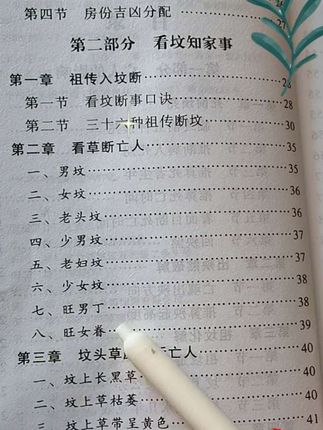 第四节 房份吉凶分配
第二部分 看坟知家事
第一章 祖传入坟断 28
第一节 看坟断事口诀 28
第二节 三十六种祖传断坟 30
第二章 看草断亡人 35
一、男坟 35
二、女坟 36
三、老头坟 36
四、少男坟 37
五、老妇坟 37
六、少女坟 38
七、旺男丁 38
八、旺女眷 39
第三章 坟头草 亡人 40
一、坟上长黑草 40
二、坟上草枯萎
三、坟上草带呈黄色 41